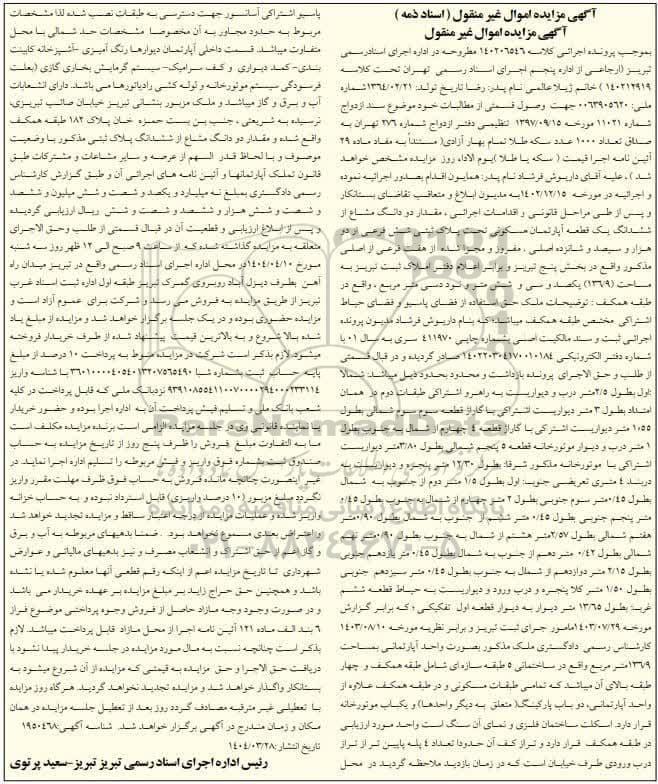 آگهی مزایده اموال غیر منقول ( اسناد ذمه )
آگهی مزایده اموال غیر منقول
بموجب پرونده اجرائی کلاسه ۱۴۰۲۰۶۵۴۶ مطروحه در اداره اجرای اسنادرسمی
تبریز (ارجاعی از اداره پنجم اجرای اسناد رسمی تهران تحت کلاسه
۱۴۰۲۱۲۹۱۹ ) خانم ژیلاعالمی نام پدر: رضا تاریخ تولد: ۱۳۶۴/۰۲/۲۱ شماره
ملی: ۰۰۶۳۹۰۵۶۲۰ جهت وصول قسمتی از مطالبات خود موضوع سند ازدواج
شماره ۱۱۰۲۱ مورخه ۱۳۹۷/۰۹/۱۵ تنظیمی دفتر ازدواج شماره ۲۷۶ تهران به
صداق تعداد ۱۰۰۰ عدد سکه طلا تمام بهار آزادی( مستنداً به مفاد ماده ۲۹
آئین نامه اجرا قیمت ( سکه یا طلا )یوم الاداء روز مزایده مشخص خواهد
شد ) ، علیه آقای داریوش فرشاد نام پدر: همایون اقدام بصدور اجرائیه نموده
و اجرائیه در مورخه ۱۴۰۲/۱۲/۱۵به مدیون ابلاغ و متعاقب تقاضای بستانکار
و پس از طی مراحل قانونی و اقدامات اجرائی ، مقدار دو دانگ مشاع از
ششدانگ یک قطعه آپارتمان مسکونی تحت پلاک ثبتی شش فرعی از دو
هزار و سیصد و شانزده اصلی ، مفروز و مجزا شده از هفت فرعی از اصلی
مذکور واقع در بخش پنج تبریز و برابر اعلام دفتر املاک ثبت تبریز به
مساحت (۱۳۶/۹) یکصد و سی و شش متر و نود دسی متر مربع ، واقع در
طبقه همکف : توضیحات ملک حق استفاده از فضای پاسیو و فضای حیاط
اشتراکی مختص طبقه همکف میباشد؛ که بنام داریوش فرشاد مدیون پرونده
اجرائی ثبت و سند مالکیت اصلی بشماره چاپی ۴۱۱۹۷۰ سری به سال ۰۱ با
شماره دفتر الکترونیکی ۱۴۰۲۲۰۳۰۴۱۷۰۰۱۰۱۸۴ صادر گردیده و در قبال قسمتی
از طلب و حق الاجرای پرونده بازداشت و محدود بحدود ذیل میباشد: شمالا
:اول بطول ۲/۵متر درب و دیواریست به راهرو اشتراکی طبقات دوم در همان
امتداد بطول ۳ متر دیواریست اشتراکی با گاراژ قطعه سوم شمالی بطول
۱/۵۵ متر دیواریست اشتراکی با گاراژ قطعه ۴ چهارم از شمال به جنوب بطول
۱ متر درب و دیوار موتورخانه قطعه ۵ پنجم شمالی بطول ۳/۸۰متر دیواریست
اشتراکی با موتورخانه مذکور شرقا: بطول ۱۲/۳۰ متر پنجره و دیواریست به
دربند ۴ متری تعریضی جنوب: اول بطول ۱/۵ متر دوم از جنوب به شمال
بطول ۰/۴۵متر سوم جنوبی بطول ۲ متر چهارم از شمال به جنوب بطول ۰/۴۵
متر پنجم جنوبی بطول ۰/۴۵ متر ششم از جنوب به شمال بطول ۰/۹۰متر
هفتم شمالی بطول ۲/۵۷متر هشتم از شمال به جنوب بطول ۰/۹۰متر نهم
شمالی بطول ۰/۴۲ متر دهم از جنوب به شمال بطول ۰/۴۵ متر یازدهم جنوبی
بطول ۲/۱۵ متر دوازدهم از شمال به جنوب بطول ۰/۴۵ متر سیزدهم جنوبی
بطول ۱/۵۰ متر کلا پنجره و درب ورود و دیواریست به حیاط قطعه ششم
غربیا: بطول ۱۳/۶۵ متر دیوار به دیوار قطعه اول تفکیکی ؛ که برابر گزارش
مورخه ۱۴۰۳/۰۷/۲۹مامور جرای ثبت تبریز و برابر نظریه مورخه ۱۴۰۳/۰۸/۱۰
کارشناس رسمی دادگستری ملک مذکور بصورت واحد آپارتمانی بمساحت
۱۳۶/۹متر مربع واقع در ساختمانی ۵ طبقه سازه ای شامل طبقه همکف و چهار
طبقه بالای آن میباشد که تمامی طبقات مسکونی و در طبقه همکف علاوه از
واحد آپارتمانی، دو باب پارکینگ( متعلق به دیگر واحدها) و یکباب موتورخانه
قرار دارد. اسکلت ساختمان فلزی و نمای آن سنگ است واحد مورد ارزیابی
در طبقه همکف قرار دارد و تراز کف آن حدودا تعداد ۴ پله پایین تر از تراز
درب ورودی طرف خیابان است که در زمان بازدید ملاحظه گردید در محل
پاسیو اشتراکی آسانسور جهت دسترسی به طبقات نصب شده لذا مشخصات
مربوط به حدود مجاور به آن مخصوصا مشخصات حد شمالی با محل
متفاوت میباشد. قسمت داخلی آپارتمان دیوارها رنگ آمیزی -آشپزخانه کابینت
بندی- کمد دیواری و کف سرامیک- سیستم گرمایش بخاری گازی (بعلت
فرسودگی سیستم موتورخانه و لوله کشی رادیاتورها می باشد. دارای انشعابات
آب و برق و گاز میباشد و ملک مزبور بنشانی تبریز خیابان صائب تبریزی،
نرسیده به شریعتی ، جنب بن بست حمزه خان پلاک ۱۸۲ طبقه همکف
واقع شده و مقدار دو دانگ مشاع از ششدانگ پلاک ثبتی مذکور با وضعیت
موصوف و با لحاظ قدر السهم از عرصه و سایر مشاعات و مشترکات طبق
قانون تملک آپارتمانها و آئین نامه های اجرائی آن و طبق گزارش کارشناس
رسمی دادگستری بمبلغ نه میلیارد و یکصد و شصت و شش میلیون و ششصد
و شصت و شش هزار و ششصد و شصت و شش ریال ارزیابی گردیده
و پس از ابلاغ ارزیابی و قطعیت آن در قبال قسمتی از طلب وحق الاجرای
متعلقه به مزایده گذاشته شده که از ساعت ۹ صبح الی ۱۲ ظهر روز سه شنبه
مورخ ۱۴۰۴/۰۴/۱۰در محل اداره اجرای اسناد رسمی واقع در تبریز میدان راه
آهن بطرف دیزل آباد روبروی گمرک تبریز طبقه اول اداره ثبت اسناد غرب
تبریز از طریق مزایده به فروش می رسد و شرکت برای عموم آزاد است و
مزایده حضوری بوده و در یک جلسه برگزار خواهد شد و مزایده از مبلغ یاد
شده بالا شروع و به بالاترین قیمت پیشنهاد شده از طرف خریدار فروخته
میشود لازم بذکر است شرکت در مزایده منوط به پرداخت ۱۰ درصد از مبلغ
پایه به حساب ثبت بشماره شبا
با شناسه واریز
نزدبانک ملی که قابل پرداخت در کلیه
شعب بانک ملی و تسلیم فیش پرداخت آن به اداره اجرا بوده و حضور خریدار
یا نماینده قانونی وی در جلسه مزایده الزامی است برنده مزایده مکلف است
ما به التفاوت مبلغ فروش را ظرف پنج روز از تاریخ مزایده به حساب
صندوق ثبت بشماره فوق واریز و فیش مربوطه را تسلیم اداره اجرا نماید. در
غیر اینصورت چنانچه مانده فروش به حساب فوق ظرف مهلت مقرر واریز
نگردد مبلغ مزبور (۱۰ درصد واریزی) قابل استرداد نبوده و به حساب خزانه
واریز شده و عملیات مزایده از درجه اعتبار ساقط و مزایده تجدید خواهد شد
و اعتراض بعدی مسموع نخواهد بود . ضمنا بدهیهای مربوطه به آب و برق
و گاز اعم از حق اشتراک و انشعاب مصرف و نیز بدهیهای مالیاتی و عوارض
شهرداری تا تاریخ مزایده اعم از اینکه رقم قطعی آنها معلوم شده یا نشده
باشد و همچنین حق حراج زاید بر مبلغ مزایده بر عهده خریدار می باشد
و در صورت وجود وجه مازاد حاصل از فروش وجوه پرداختی موضوع فراز
۶ بند الف ماده ۱۲۱ آئین نامه اجرا از محل مازاد قابل پرداخت میباشد. لازم
بذکر است چنانچه نسبت به مال مورد مزایده در جلسه خریدار پیدا نشود با
دریافت حق الاجرا و حق مزایده به قیمتی که مزایده از آن شروع میشود به
بستانکار واگذار خواهد شد و مزایده تجدید نخواهد گردید. هرگاه روز مزایده
با تعطیلی غیر مترقبه مصادف گردد روز بعد از تعطیل جلسه مزایده در همان
مکان و زمان مندرج در آگهی برگزار خواهد شد. شناسه آگهی:۱۹۵۰۴۶۸
تاریخ انتشار:۱۴۰۴/۰۳/۲۸
رئیس اداره اجرای اسناد رسمی تبریز تبریز-سعید پرتوی